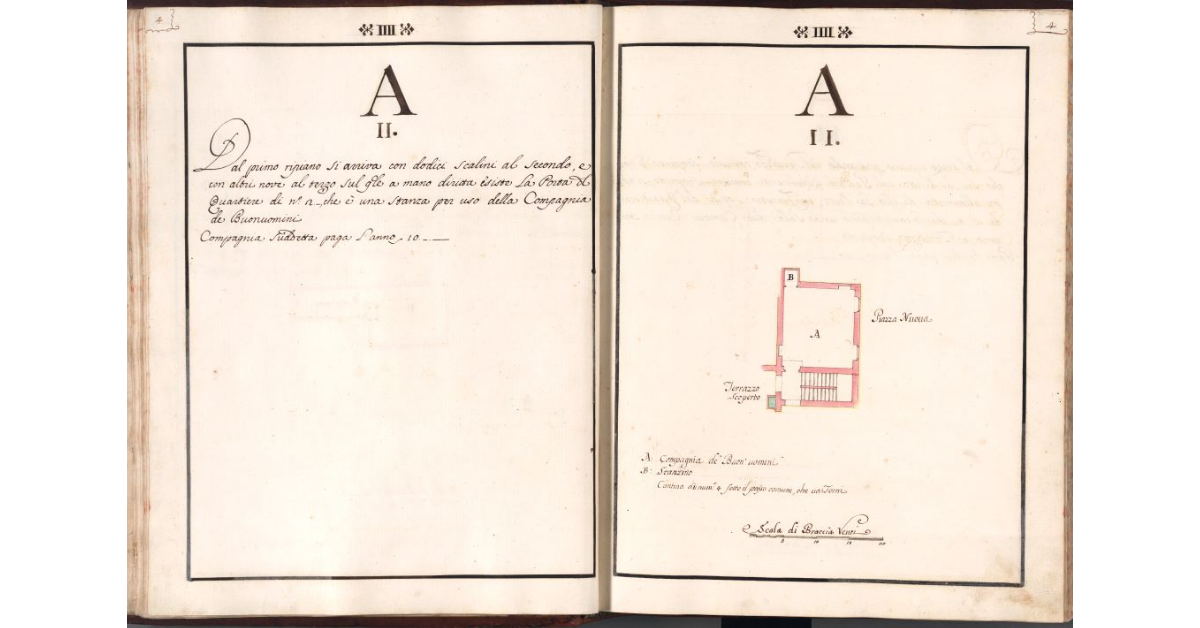 4
IIII
A
II.
Dal primo ripiano si arriva con dodici scalini al secondo, e
con altri nove al terzo sul qle a mano diritta esiste La Porta del
Quartiere di n.º 12., che è una stanza per uso della Compagnia
de Buonuomini
Compagnia Suddetta paga l'anno 10
4
IIII
A
II.
B
A
Piazza Nuova
Terrazzo
scoperto
A Compagnia de' Buon'uomini
B Stanzino
Cantina di num.º 4 sotto il
Scala di Braccia Venti
5 10 15 20